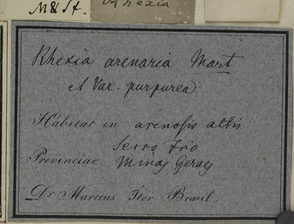 M & St. Rhexia
Rhexia arenaria Mart
et Var. purpurea
Habitat in arenosis altis
Serro Frio
Provinciae Minas Geraes
Dr Martius Iter Brasil.